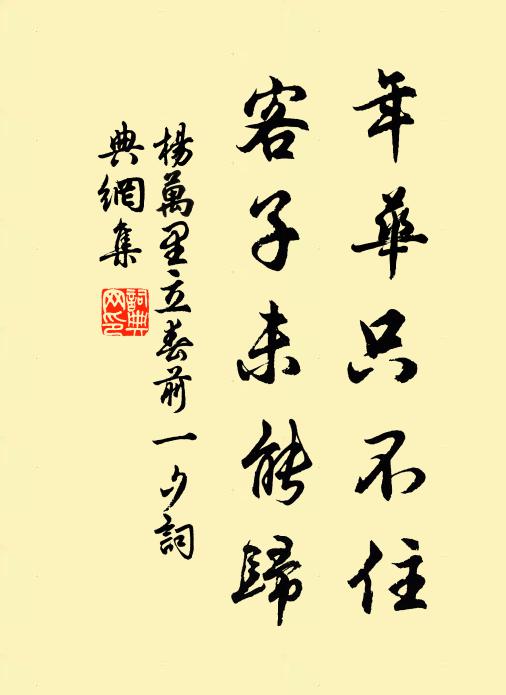 年華只不住
客子未能歸
楊萬里立春前一夕詞
典網集
詞典
网印